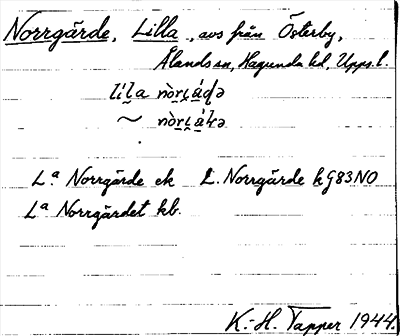 Norrgärde, Lilla, avs från Österby,
Ålands sn, Hagunda hd, Upps. l.
Lª Norrgärde ek L. Norrgärde kg83NO
Lª Norrgärdet kb.
K.-H. Tapper 1944.